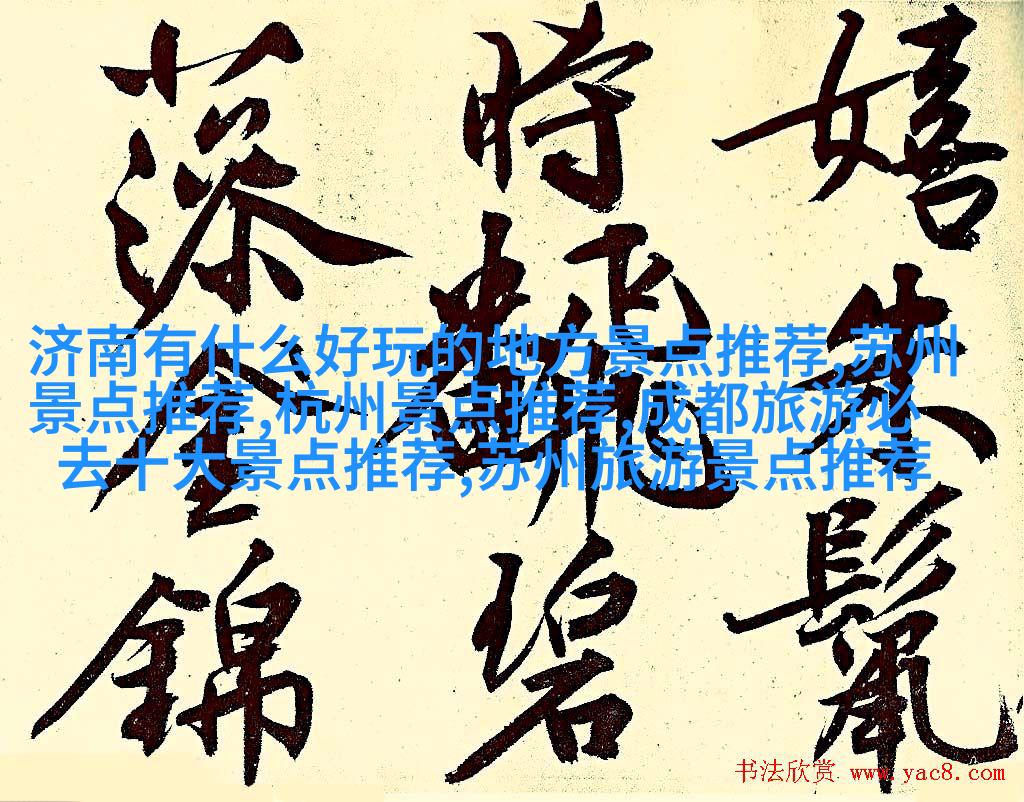 嬉朱鬣
時飜碧
藻全錦
济南有什么好玩的地方景点推荐,苏州
景点推荐,杭州景点推荐,成都旅游必
去十大景点推荐,苏州旅游景点推荐
书法欣赏 www.yac8.com